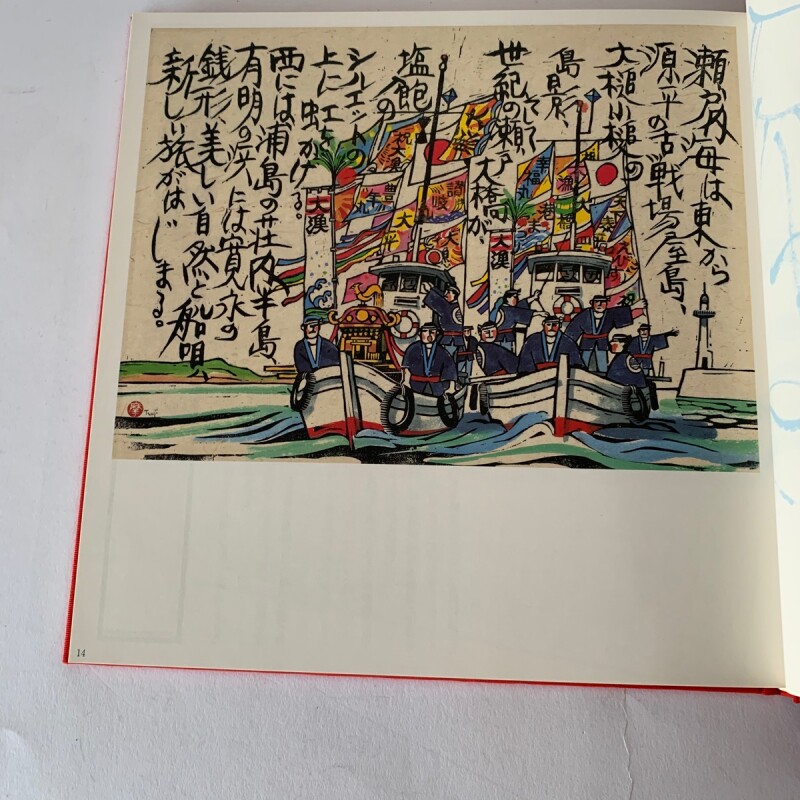 瀬戸内海は東から
源平の古戦場屋島、
大槌小槌の
島影、
そして
世紀の瀬戸大橋が、
塩飽
人の
シルエットの
上に虹をかける。
西には浦島の荘内半島、
有明の浜には寛永の
銭形、美しい自然と船唄、
新しい旅がはじまる。
祝大漁
大漁
豊
幸丸
讃岐
太平
大漁
幸福丸
港
大橋
大漁
14